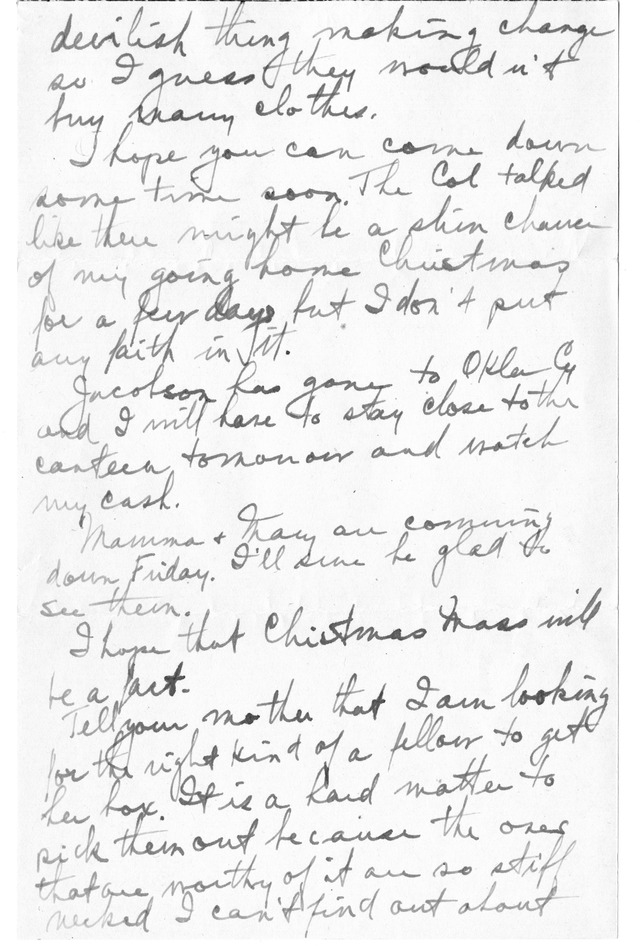 devilish thing making change
so I guess they would n't
buy many clothes.
I hope you can come down
some time soon. The Col talked
like there might be a slim chance
of my going home Christmas
for a few days but I don't put
any faith in it.
Jacobson has gone to Okla Cy
and I will have to stay close to the
canteen tomorrow and watch
my cash.
Mamma & Mary are comming
down Friday. I'll sure be glad to
see them.
I hope that Christmas Mass will
be a fact.
Tell your mother that I am looking
for the right kind of a fellow to get
her box. It is a hard matter to
pick them out because the ones
that are worthy of it are so stiff
necked I can't find out about